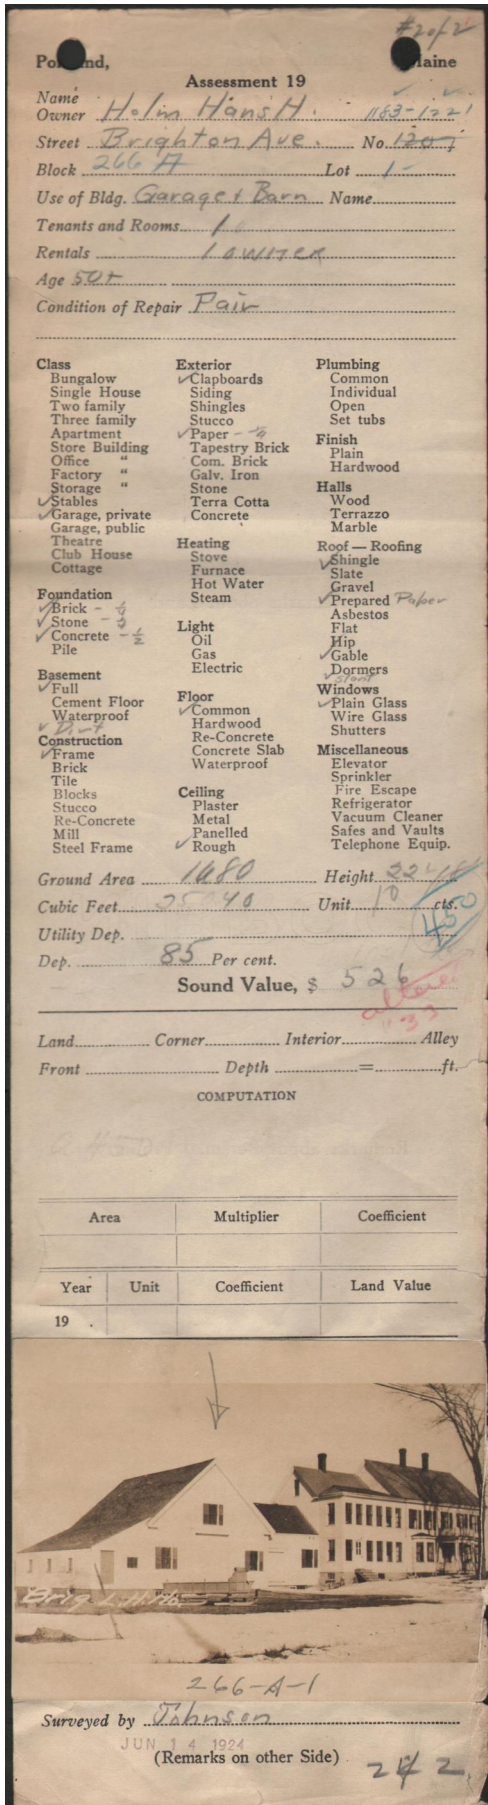 #2 of 2
Portland, Maine
Assessment 19
Name
Owner Holm Hans H. 1183-1221
Street Brighton Ave. No. 1207
Block 266 A Lot 1
Use of Bldg. Garage & Barn Name
Tenants and Rooms 1
Rentals 1 owner
Age 50+
Condition of Repair Fair
Class
Bungalow
Single House
Two family
Three family
Apartment
Store Building
Office "
Factory "
Storage "
✓Stables
✓Garage, private
Garage, public
Theatre
Club House
Cottage
Foundation
✓Brick - ¼
✓Stone - ¼
✓Concrete - ½
Pile
Basement
✓Full
Cement Floor
Waterproof
✓ Dirt
Construction
✓Frame
Brick
Tile
Blocks
Stucco
Re-Concrete
Mill
Steel Frame
Exterior
✓Clapboards
Siding
Shingles
Stucco
✓Paper - ¼
Tapestry Brick
Com. Brick
Galv. Iron
Stone
Terra Cotta
Concrete
Heating
Stove
Furnace
Hot Water
Steam
Light
Oil
Gas
Electric
Floor
✓Common
Hardwood
Re-Concrete
Concrete Slab
Waterproof
Ceiling
Plaster
Metal
Panelled
✓Rough
Plumbing
Common
Individual
Open
Set tubs
Finish
Plain
Hardwood
Halls
Wood
Terrazzo
Marble
Roof — Roofing
✓Shingle
Slate
Gravel
✓Prepared Paper
Asbestos
Flat
Hip
✓Gable
Dormers
✓Slant
Windows
✓Plain Glass
Wire Glass
Shutters
Miscellaneous
Elevator
Sprinkler
Fire Escape
Refrigerator
Vacuum Cleaner
Safes and Vaults
Telephone Equip.
Ground Area 1680 Height 22
Cubic Feet Unit 10 cts.
450
Utility Dep.
Dep. 85 Per cent.
Sound Value, $ 526
altered
'33
Land Corner Interior Alley
Front Depth = ft.
COMPUTATION
Area Multiplier Coefficient
Year Unit Coefficient Land Value
19 .
Brig
266-A-1
Surveyed by Johnson
JUN 14 1924
(Remarks on other Side)
2